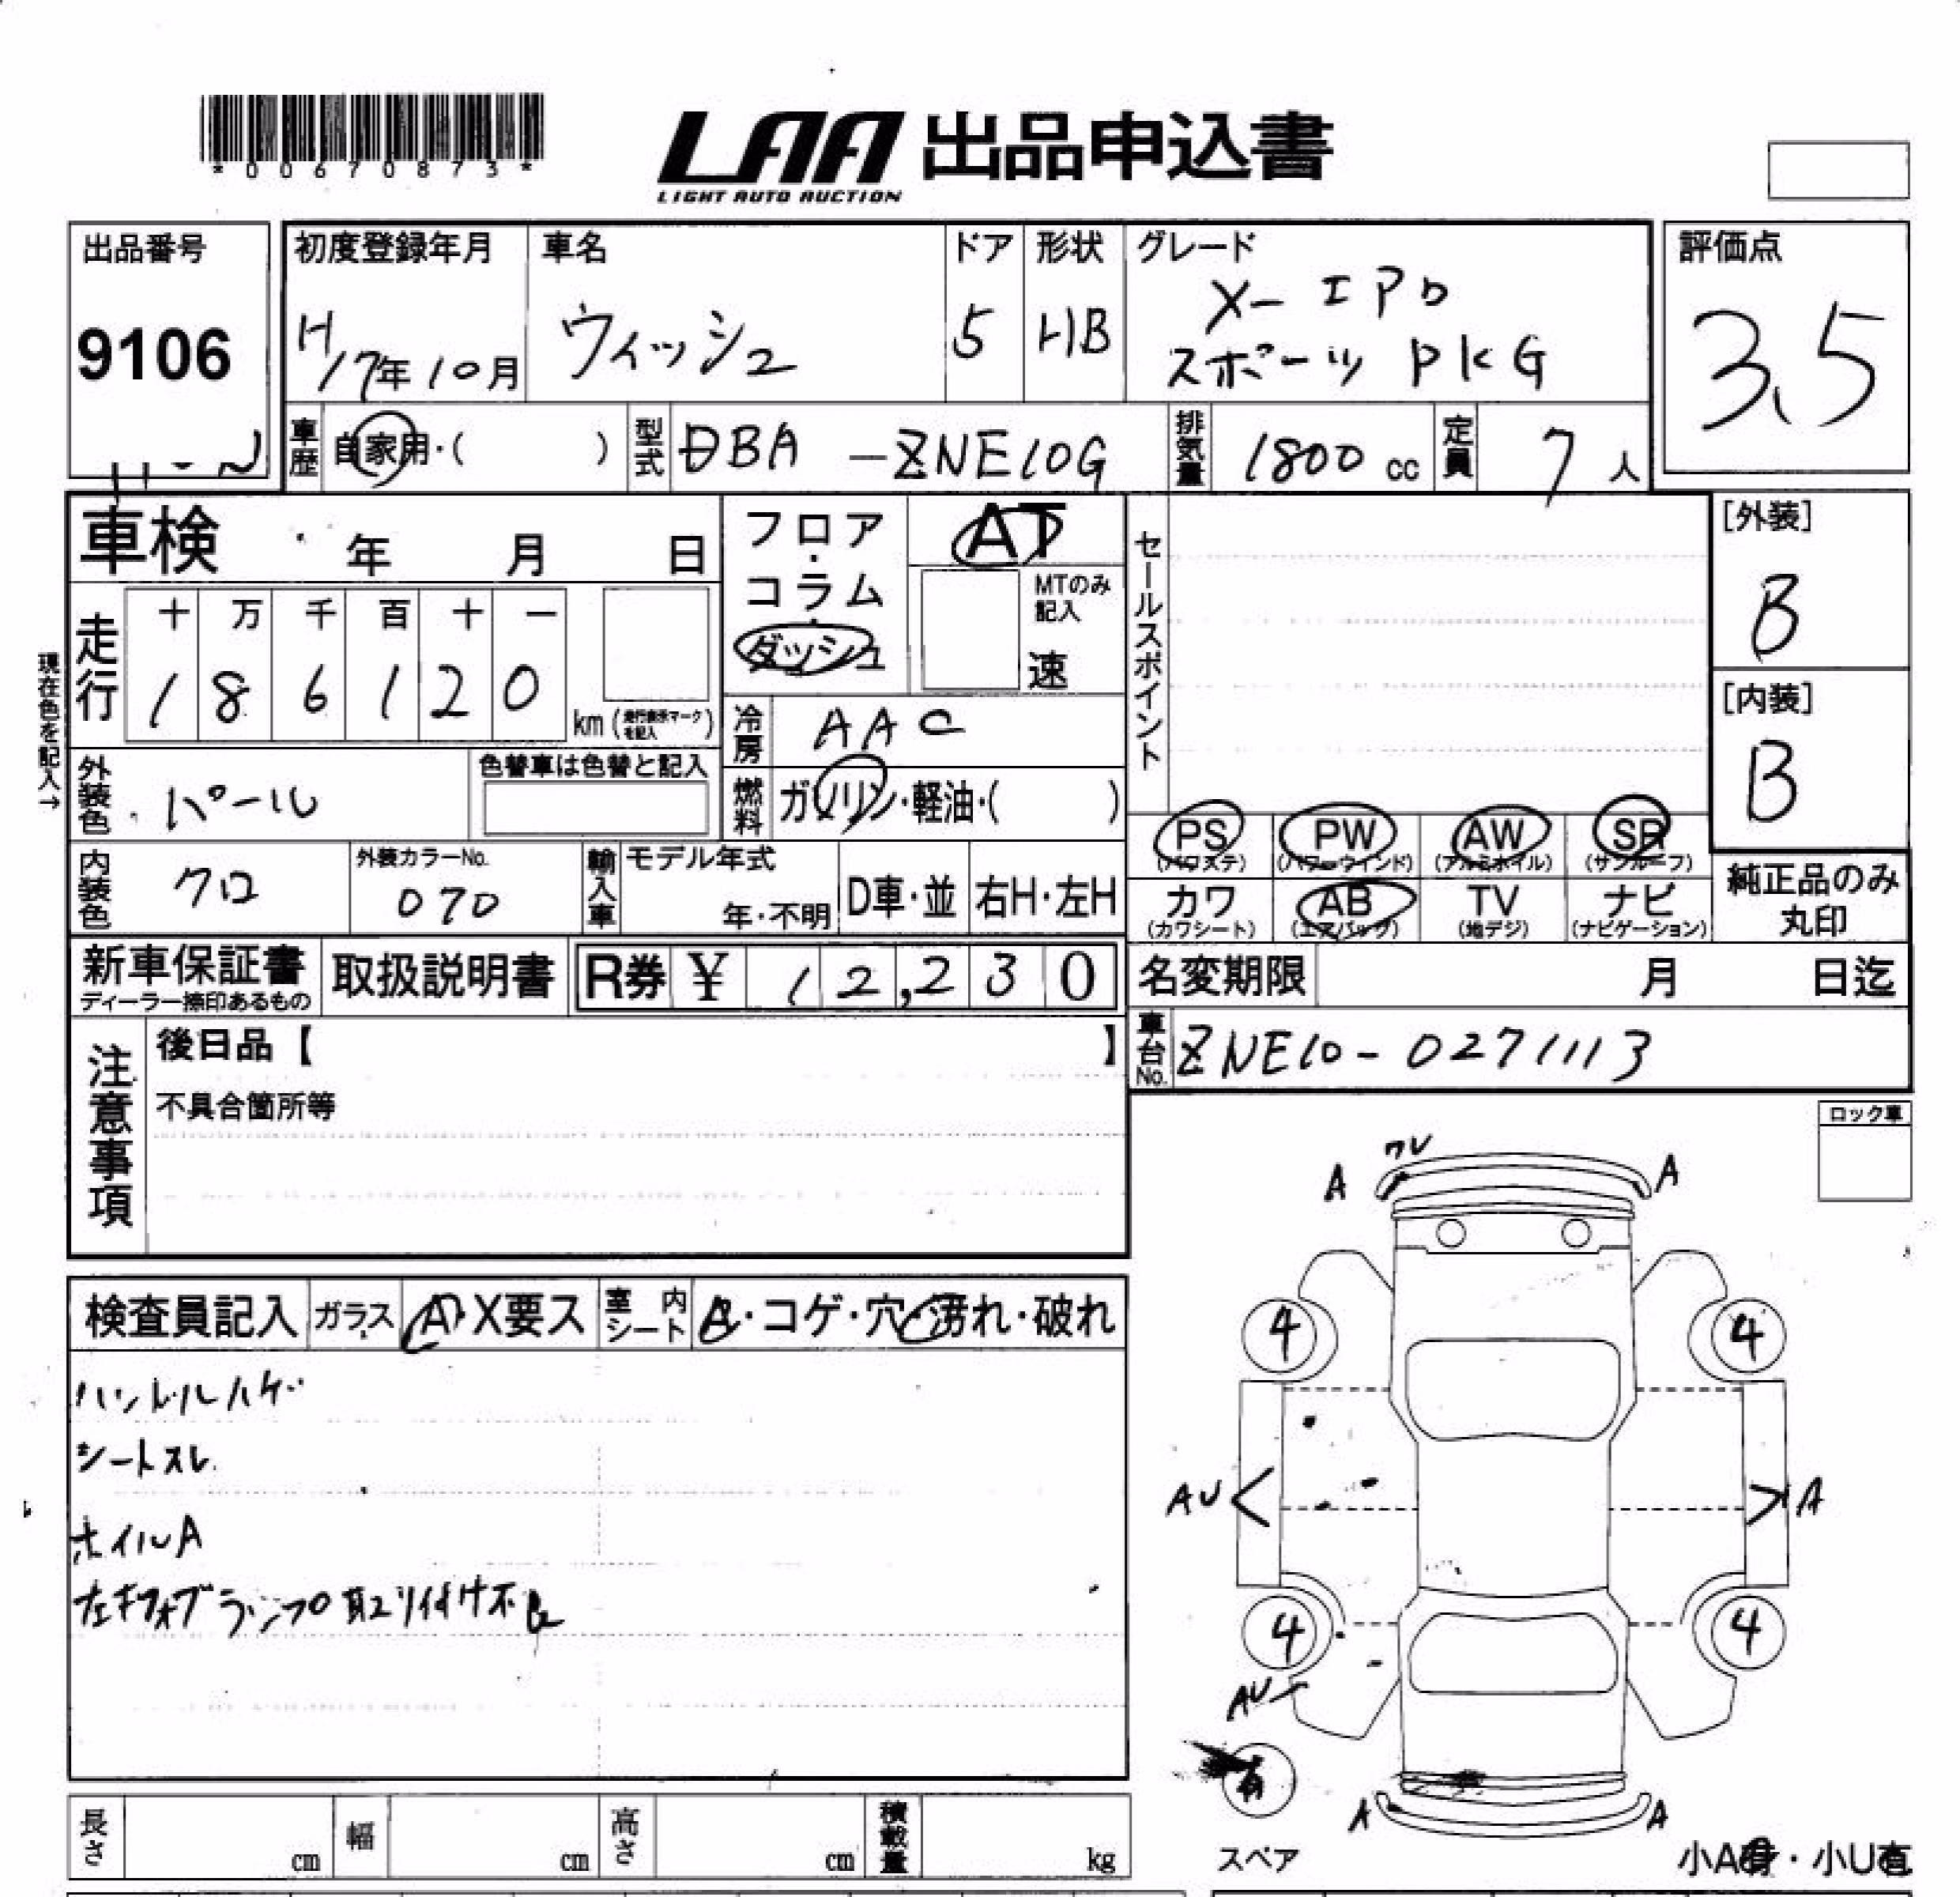 *00670873*
LAA 出品申込書
LIGHT AUTO AUCTION
出品番号
9106
初度登録年月
H17年10月
車名
ウィッシュ
ドア
5
形状
HB
グレード
X-エアロ
スポーツPKG
評価点
3.5
車歴
自家用・( )
型式
DBA-ZNE10G
排気量
1800 cc
定員
7人
車検 年 月 日
フロア・コラム・ダッシュ
AT
MTのみ記入
速
セールスポイント
[外装]
B
[内装]
B
現在色を記入→
走行
十 万 千 百 十 一
1 8 6 1 2 0
km (走行表示マークを記入)
冷房
AAC
外装色
パール
色替車は色替と記入
燃料
ガソリン・軽油・( )
内装色
クロ
外装カラーNo.
070
輸入車
モデル年式
年・不明
D車・並
右H・左H
PS
(パワステ)
PW
(パワーウィンド)
AW
(アルミホイル)
SR
(サンルーフ)
カワ
(カワシート)
AB
(エアバッグ)
TV
(地デジ)
ナビ
(ナビゲーション)
純正品のみ丸印
新車保証書
ディーラー捺印あるもの
取扱説明書
R券 ¥ 12,230
名変期限 月 日迄
車台No.
ZNE10-0271113
注意事項
後日品【 】
不具合箇所等
ロック車
検査員記入
ガラス
A・X要ス
室内シート
A・コゲ・穴・汚れ・破れ
ハンドルハゲ
シートスレ
ホイルA
左フォグランプ取り付け不良
ワレ
A A
4 4
AU A
4 4
AU
有
スペア
A A
小A有・小U有
長さ cm
幅 cm
高さ cm
積載量 kg